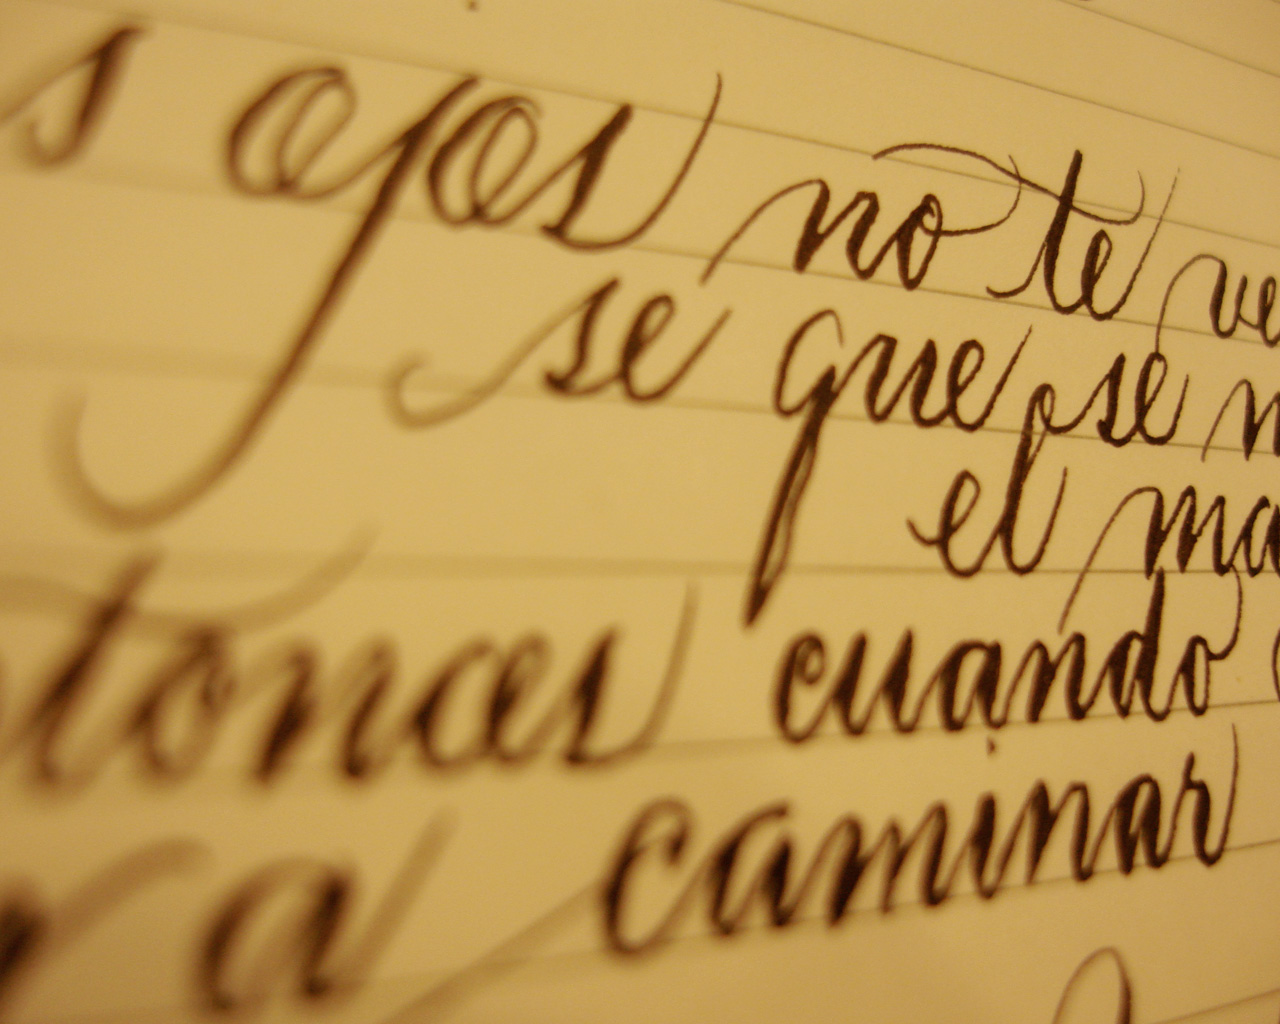 s ojos no te ve
se que se n
el ma
tonces cuando
a caminar